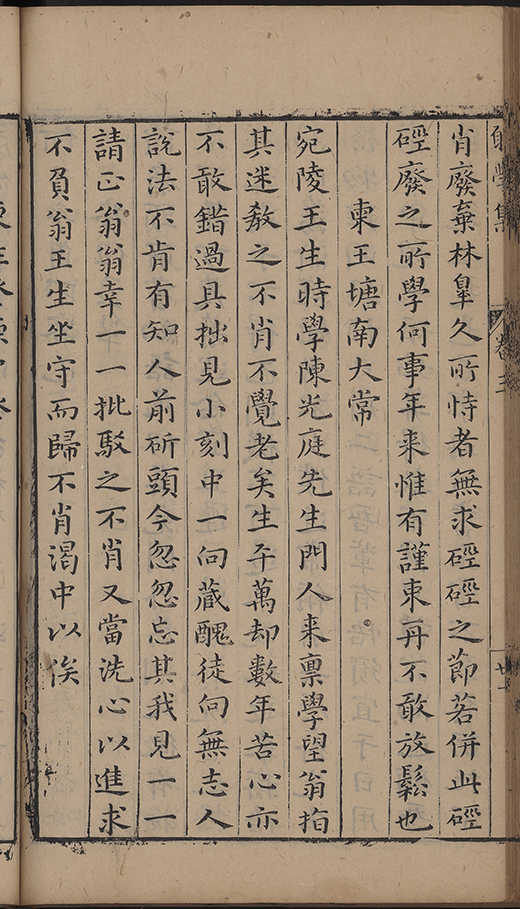 肖廢棄林臯久所恃者無求硜硜之節若併此硜
硜廢之所學何事年來惟有謹束再不敢放鬆也
柬王塘南大常
宛陵王生時學陳光庭先生門人來禀學望翁指
其迷教之不肖不覺老矣生平萬却數年苦心亦
不敢錯過具拙見小刻中一向藏醜徒向無志人
說法不肯有知人前斫頭今忽忽忘其我見一一
請正翁翁幸一一批駁之不肖又當洗心以進求
不負翁王生坐守而歸不肖渴中以俟